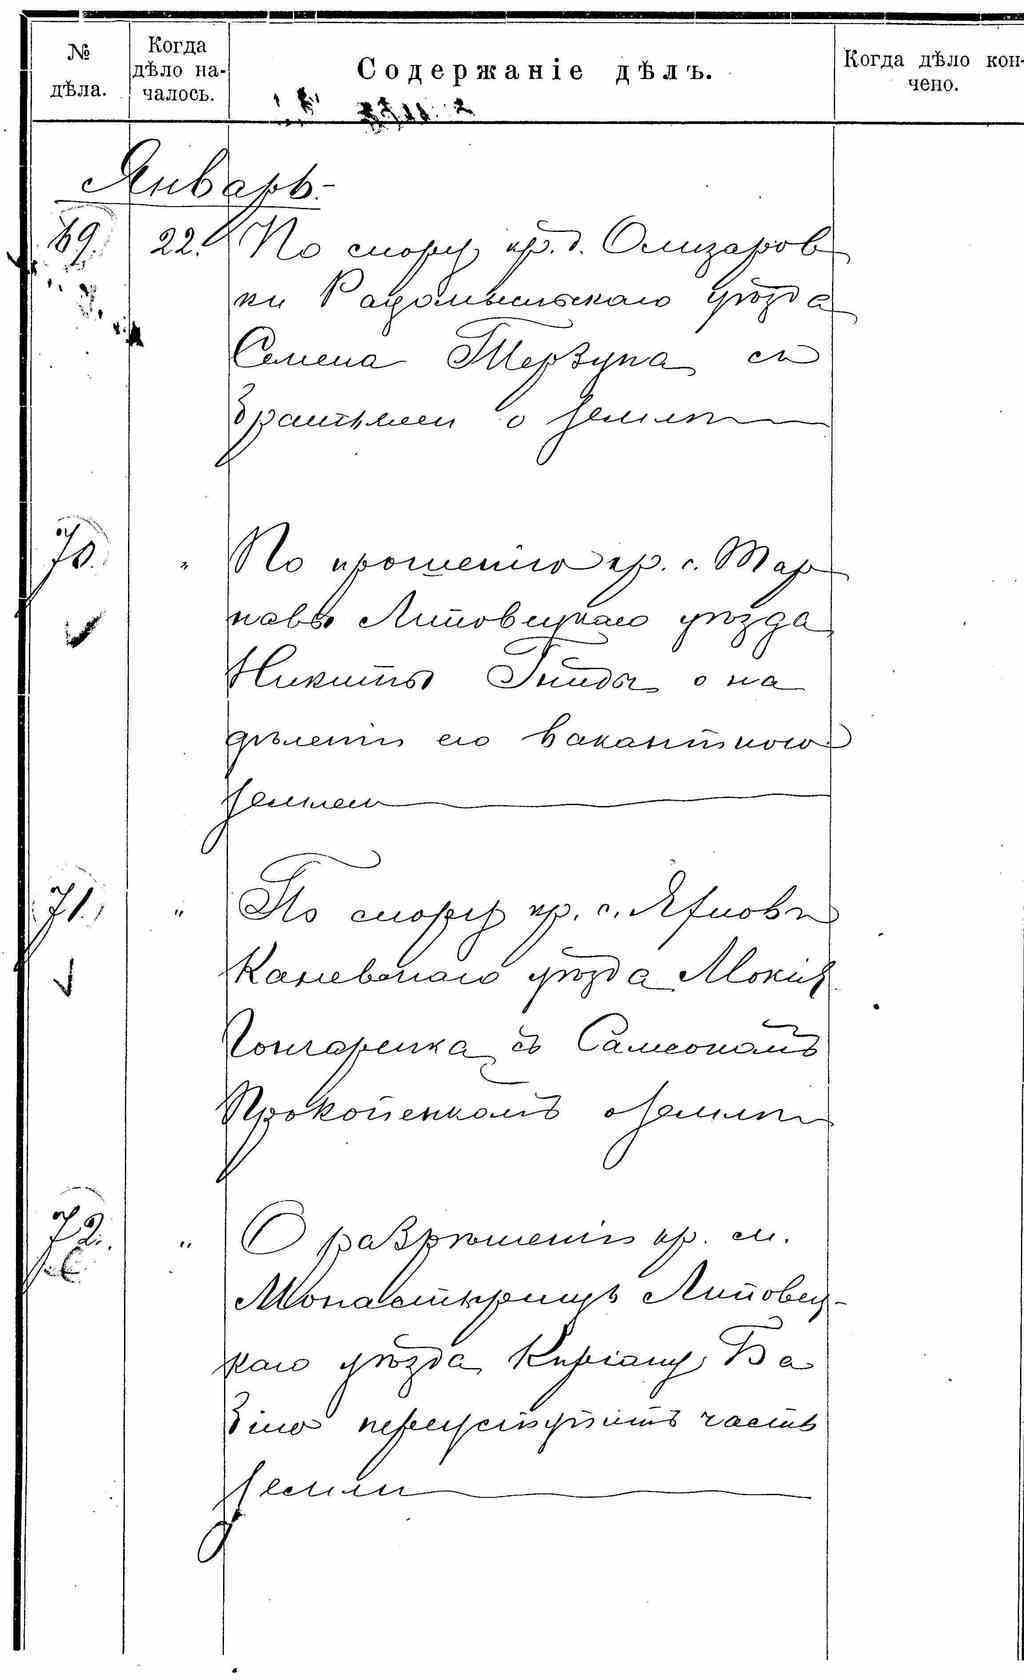 № дѣла.
Когда дѣло на-
чалось.
Содержаніе дѣлъ.
Когда дѣло кон-
чено.
Январь.
69. 22. По спору кр. д. Олизаров
ки Радомысльскаго уѣзда
Семена Терзуна съ
братьями о землѣ
70. " По прошенію кр. с. Тар
навы Липовецкаго уѣзда
Никиты Гниды о на
дѣленіи его вакантною
землею
71. " По спору кр. с.
Каневскаго уѣзда Мокія
Гончаренка съ Самсономъ
Прокопенкомъ о землѣ
72. " О разрѣшеніи кр. м.
Монастырищъ Липовец-
каго уѣзда Киріану Ба
бію переуступить часть
земли